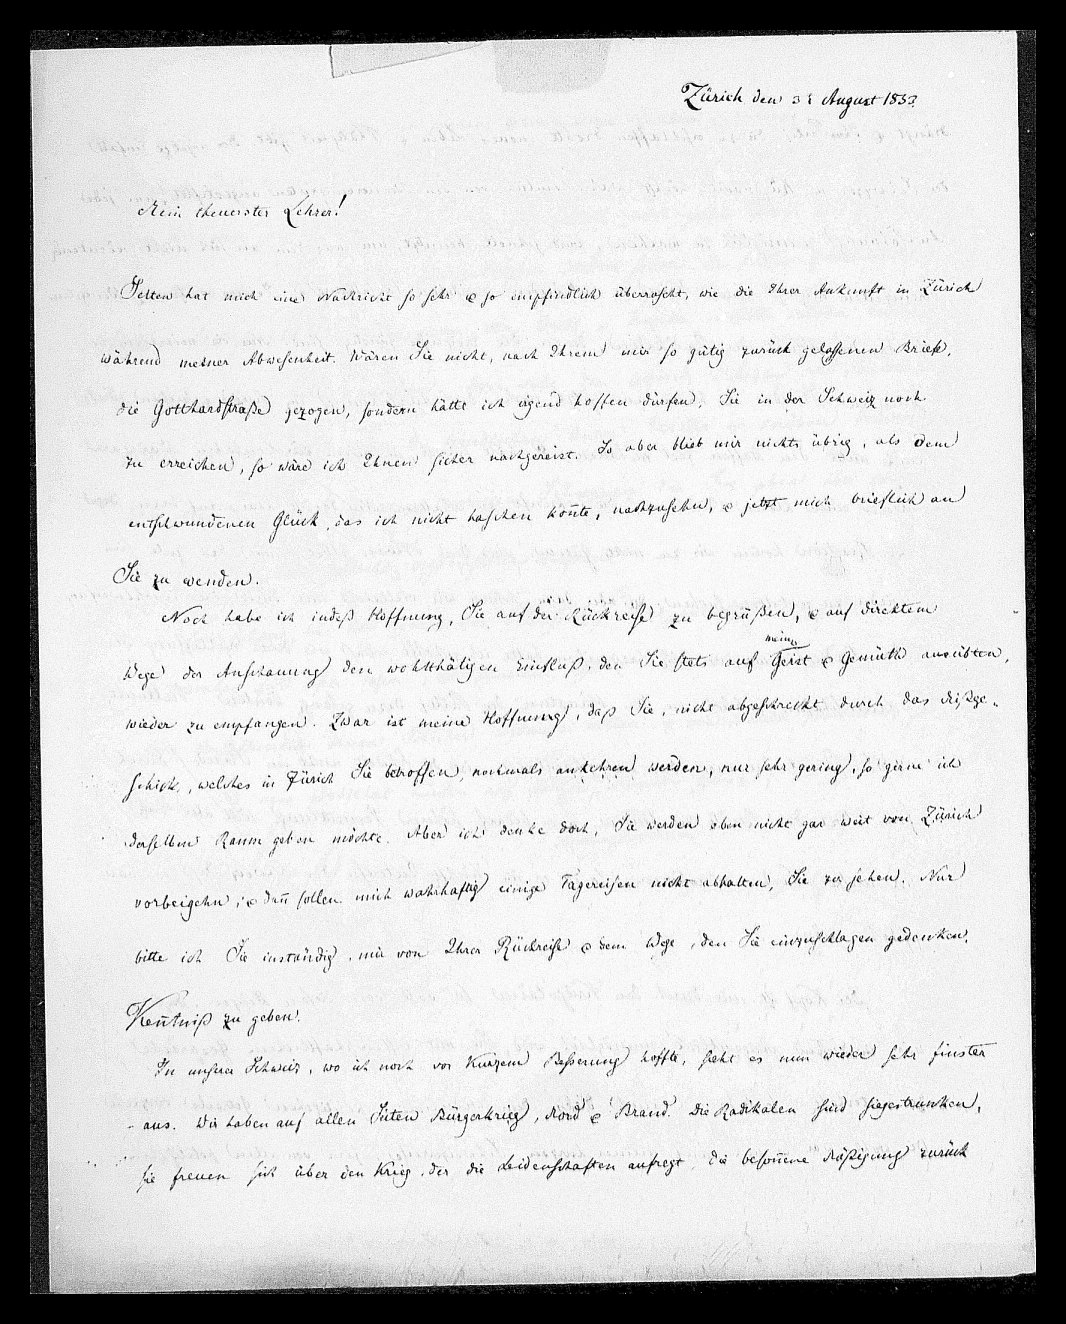 Zürich den 31 August 1833.
Mein theuerster Lehrer!
Selten hat mich eine Nachricht so sehr & so empfindlich überrascht, wie die Ihrer Ankunft in Zürich
während meiner Abwesenheit. Wären Sie nicht, nach Ihrem mir so gütig zurück gelassenen Briefe,
die Gotthardstraße gezogen, sondern hätte ich irgend hoffen dürfen, Sie in der Schweiz noch
zu erreichen, so wäre ich Ihnen sicher nachgereist. So aber blieb mir nichts übrig, als dem
entschwundenen Glück, das ich nicht haschen koñte, nachzusehn, & jetzt mich brieflich an
Sie zu wenden.
Noch habe ich indeß Hoffnung, Sie auf der Rückreise zu begrüßen, & auf direktem
Wege der Anschauung den wohlthätigen Einfluß, den Sie stets auf meinen Geist & Gemüth ausübten,
wieder zu empfangen. Zwar ist meine Hoffnung, daß Sie, nicht abgeschreckt durch das Mißge-
schick, welches in Zürich Sie betroffen, nochmals ankehren werden, nur sehr gering, so gerne ich
derselben Raum geben möchte. Aber ich denke doch, Sie werden eben nicht gar weit von Zürich
vorbeigehn; & dañ sollen mich wahrhaftig einige Tagereisen nicht abhalten, Sie zu sehen. Nur
bitte ich Sie inständig, mir von Ihrer Rückreise & dem Wege, den Sie einzuschlagen gedenken,
Keñtniß zu geben.
In unsrer Schweiz, wo ich noch vor Kurzem Besserung hoffte, sieht es nun wieder sehr finster
aus. Wir haben auf allen Seiten Bürgerkrieg, Mord & Brand. Die Radikalen sind siegestrunken,
sie freuen sich über den Krieg, der die Leidenschaften aufregt, die besoñene Mäßigung zurück